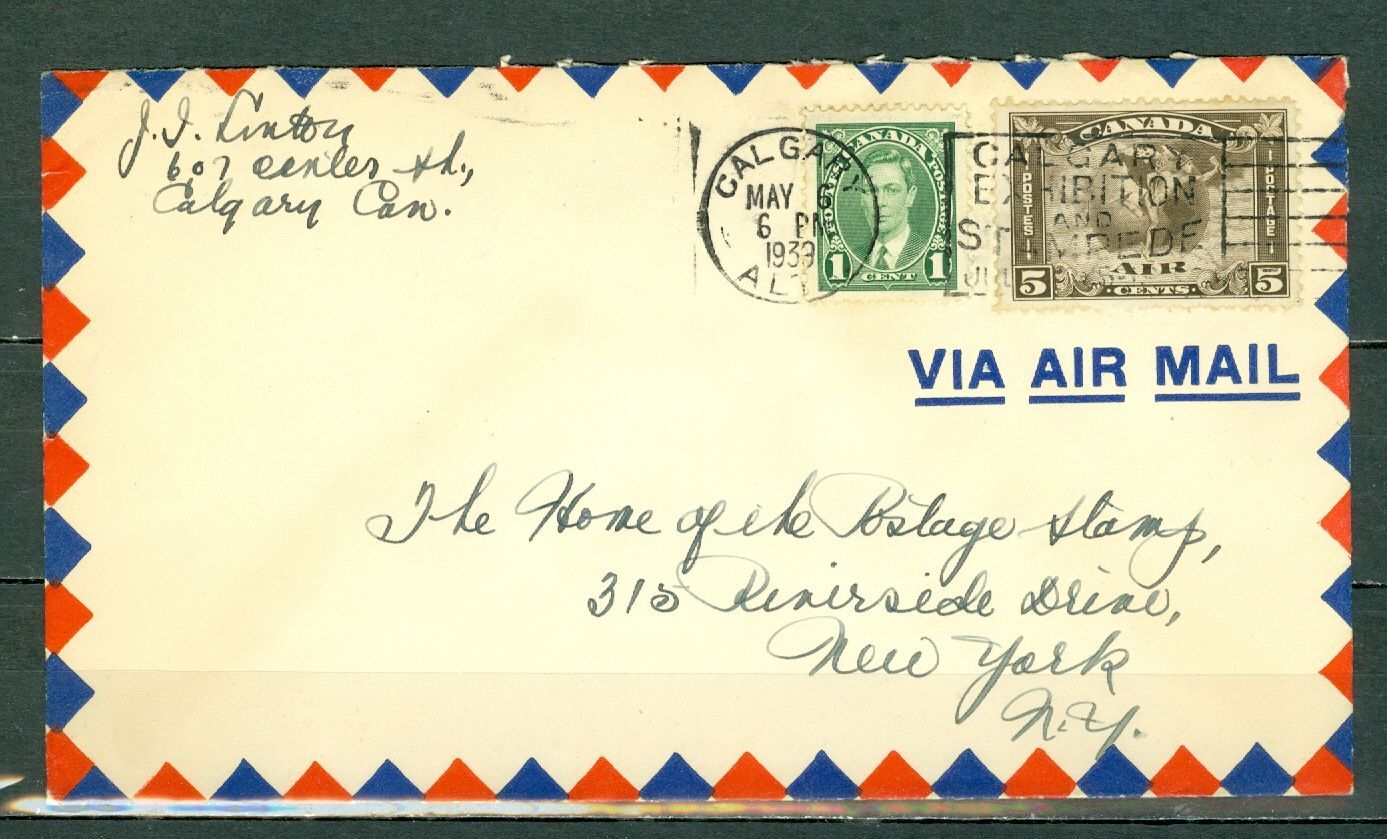 J. I. Linton
607 Center St.,
Calgary Can.
CALGARY
MAY 6
6 PM
1939
ALTA
CANADA
POSTES POSTAGE
1 CENT 1
CALGARY
EXHIBITION
AND
STAMPEDE
JUL
CANADA
POSTES POSTAGE
AIR
5 CENTS 5
VIA AIR MAIL
The Home of the Postage Stamp,
315 Riverside Drive,
New York
N.Y.